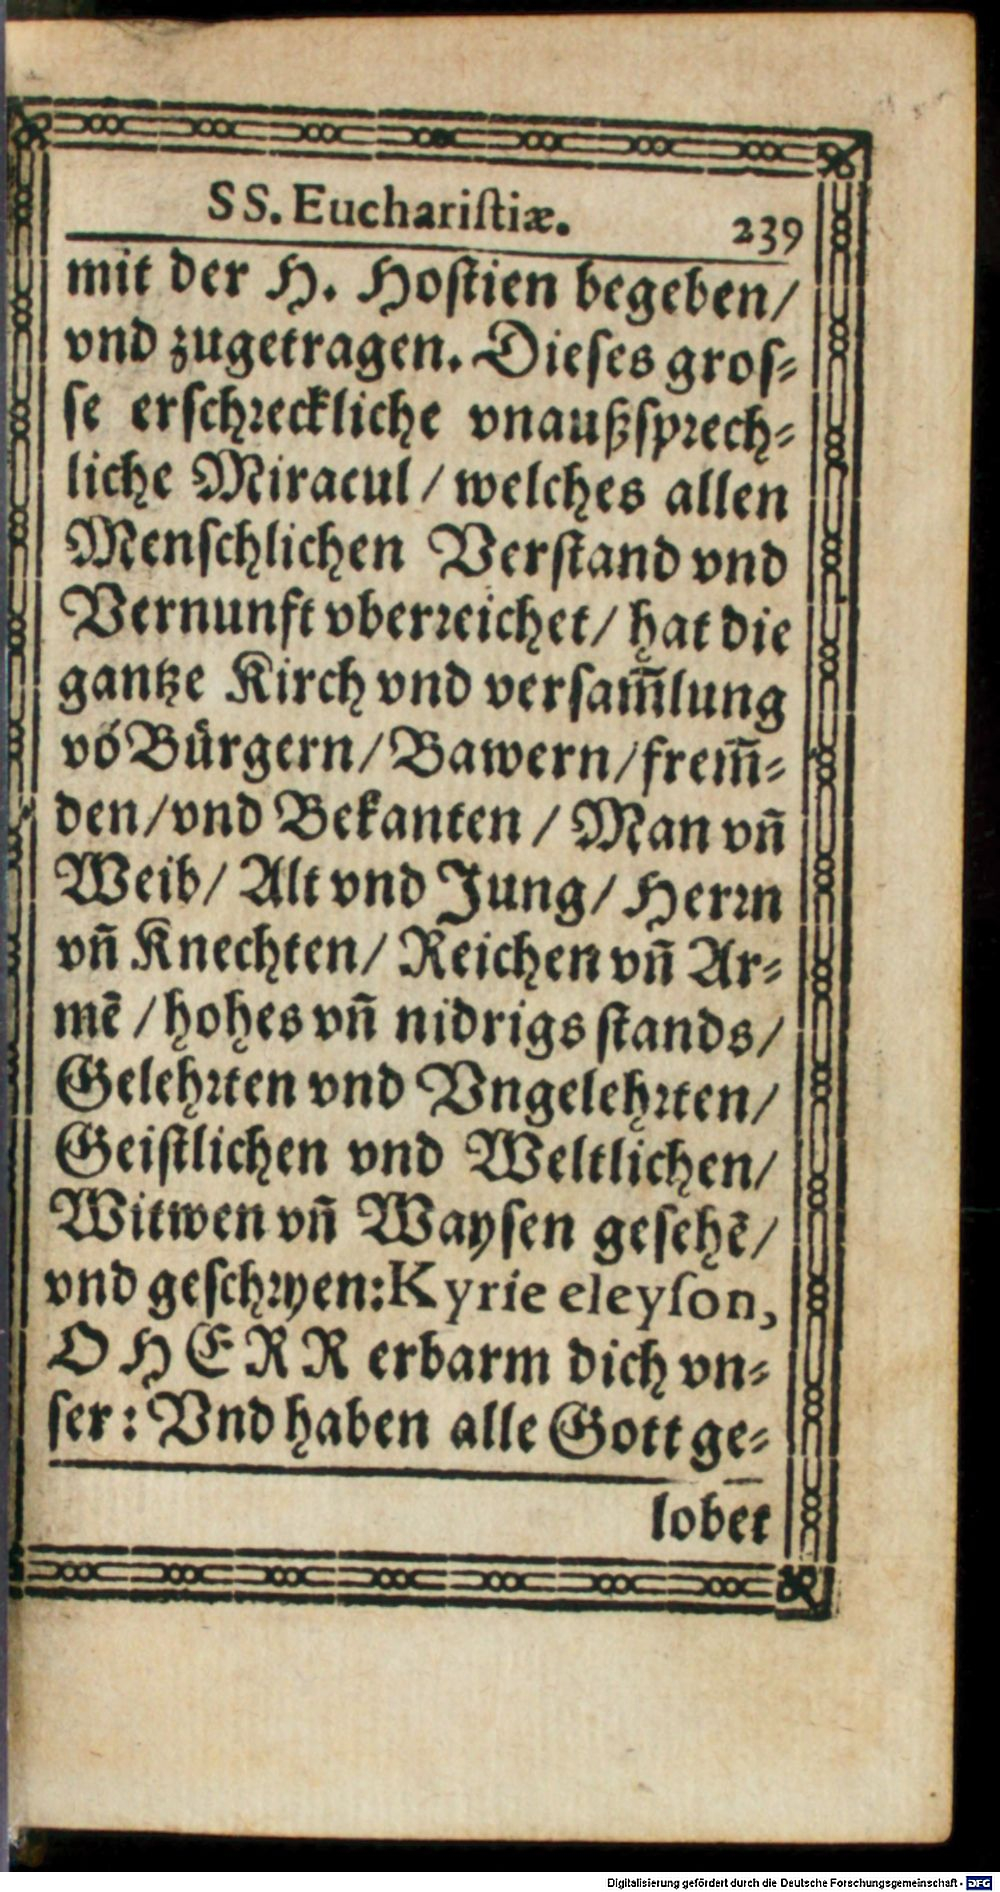 SS. Euchariſtiæ. 239
mit der H. Hoſtien begeben/
vnd zugetragen. Dieſes groſ⸗
ſe erſchꝛeckliche vnaußſpꝛech⸗
liche Miracul / welches allen
Menſchlichen Verſtand vnd
Vernunft vberꝛeichet/ hat die
gantze Kirch vnd verſam̃lung
võ Bürgern/ Bawern/ frem̃⸗
den/ vnd Bekanten / Man vñ
Weib/ Alt vnd Jung/ Herꝛn
vñ Knechten/ Reichen vñ Ar⸗
mẽ / hohes vñ nidrigs ſtands/
Gelehꝛten vnd Vngelehꝛten/
Geiſtlichen vnd Weltlichen/
Witwen vñ Wayſen geſehẽ/
vnd geſchꝛyen: Kyrie eleyſon,
O HERR erbarm dich vn⸗
ſer: Vnd haben alle Gott ge⸗
lobet
Digitalisierung gefördert durch die Deutsche Forschungsgemeinschaft - DFG